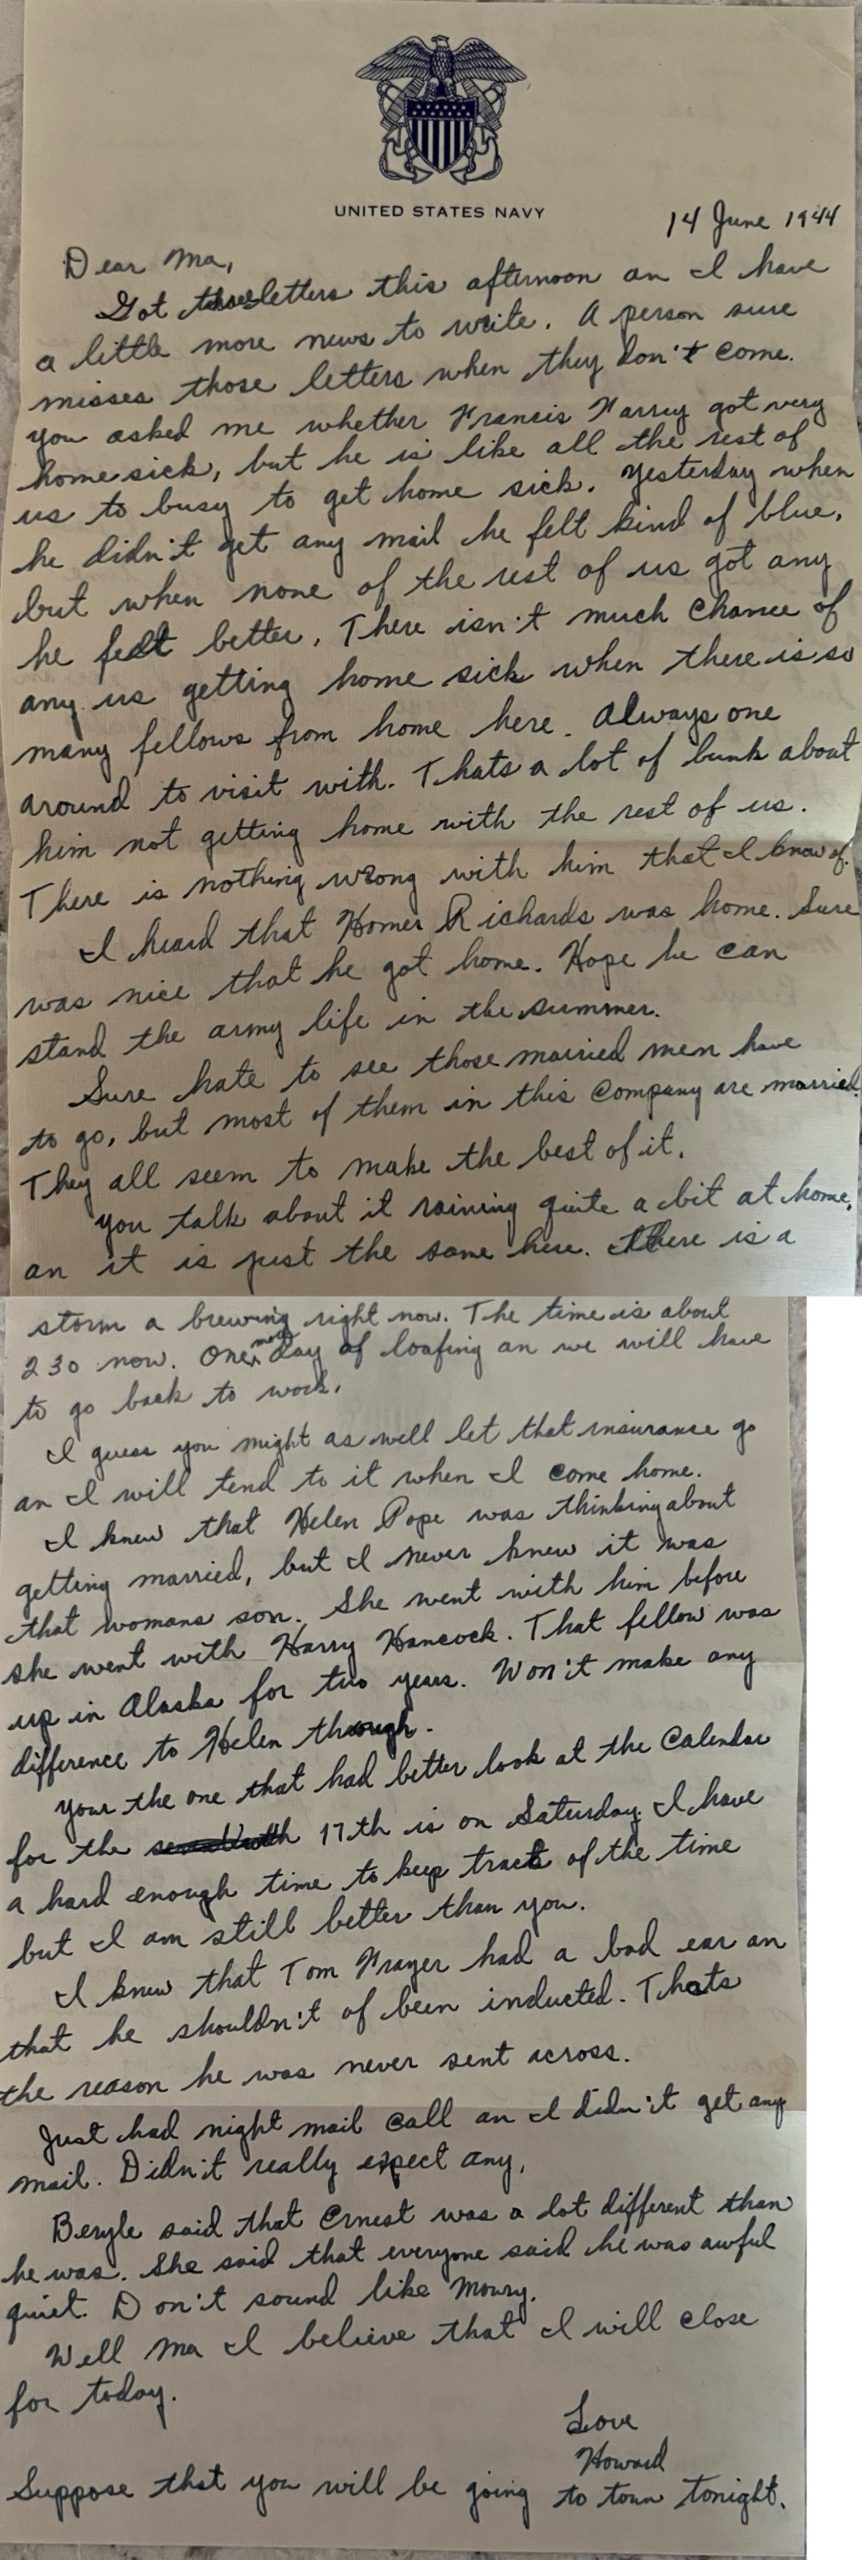 UNITED STATES NAVY
14 June 1944
Dear Ma,
Got three letters this afternoon an I have
a little more news to write. A person sure
misses those letters when they don't come.
You asked me whether Francis got very
home sick, but he is like all the rest of
us to busy to get home sick. Yesterday when
he didn't get any mail he felt kind of blue,
but when none of the rest of us got any
he felt better. There isn't much chance of
any us getting home sick when there is so
many fellows from home here. Always one
around to visit with. Thats a lot of bunk about
him not getting home with the rest of us.
There is nothing wrong with him that I know of.
I heard that Homer Richards was home. Sure
was nice that he got home. Hope he can
stand the army life in the summer.
Sure hate to see those married men have
to go, but most of them in this Company are married.
They all seem to make the best of it.
You talk about it raining quite a bit at home,
an it is just the same here. There is a
storm a brewing right now. The time is about
2 30 now. One more day of loafing an we will have
to go back to work.
I guess you might as well let that insurance go
an I will tend to it when I come home.
I knew that Helen Pope was thinking about
getting married, but I never knew it was
that womans son. She went with him before
she went with Harry Hancock. That fellow was
up in Alaska for two years. Won't make any
difference to Helen through.
Your the one that had better look at the Calendar
for the 17th is on Saturday. I have
a hard enough time to keep track of the time
but I am still better than you.
I knew that Tom had a bad ear an
that he shouldn't of been inducted. Thats
the reason he was never sent across.
Just had night mail call an I didn't get any
mail. Didn't really expect any.
Beryle said that Ernest was a lot different than
he was. She said that everyone said he was awful
quiet. Don't sound like Moury.
Well Ma I believe that I will close
for today.
Love
Howard
Suppose that you will be going to town tonight.